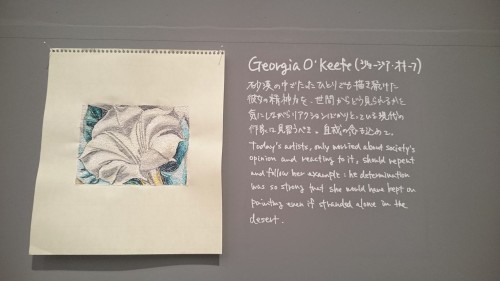 Georgia O'Keefe (ジョージア・オキーフ)
砂漠の中でたったひとりでも描き続けた
彼女の精神力を、世間からどう見られるかを
気にしながらリアクションばかりとっている現代の
作家は見習うべき。自戒の念を込めて。
Today's artists, only worried about society's
opinion and reacting to it, should repent
and follow her example : her determination
was so strong that she would have kept on
painting even if stranded alone in the
desert.